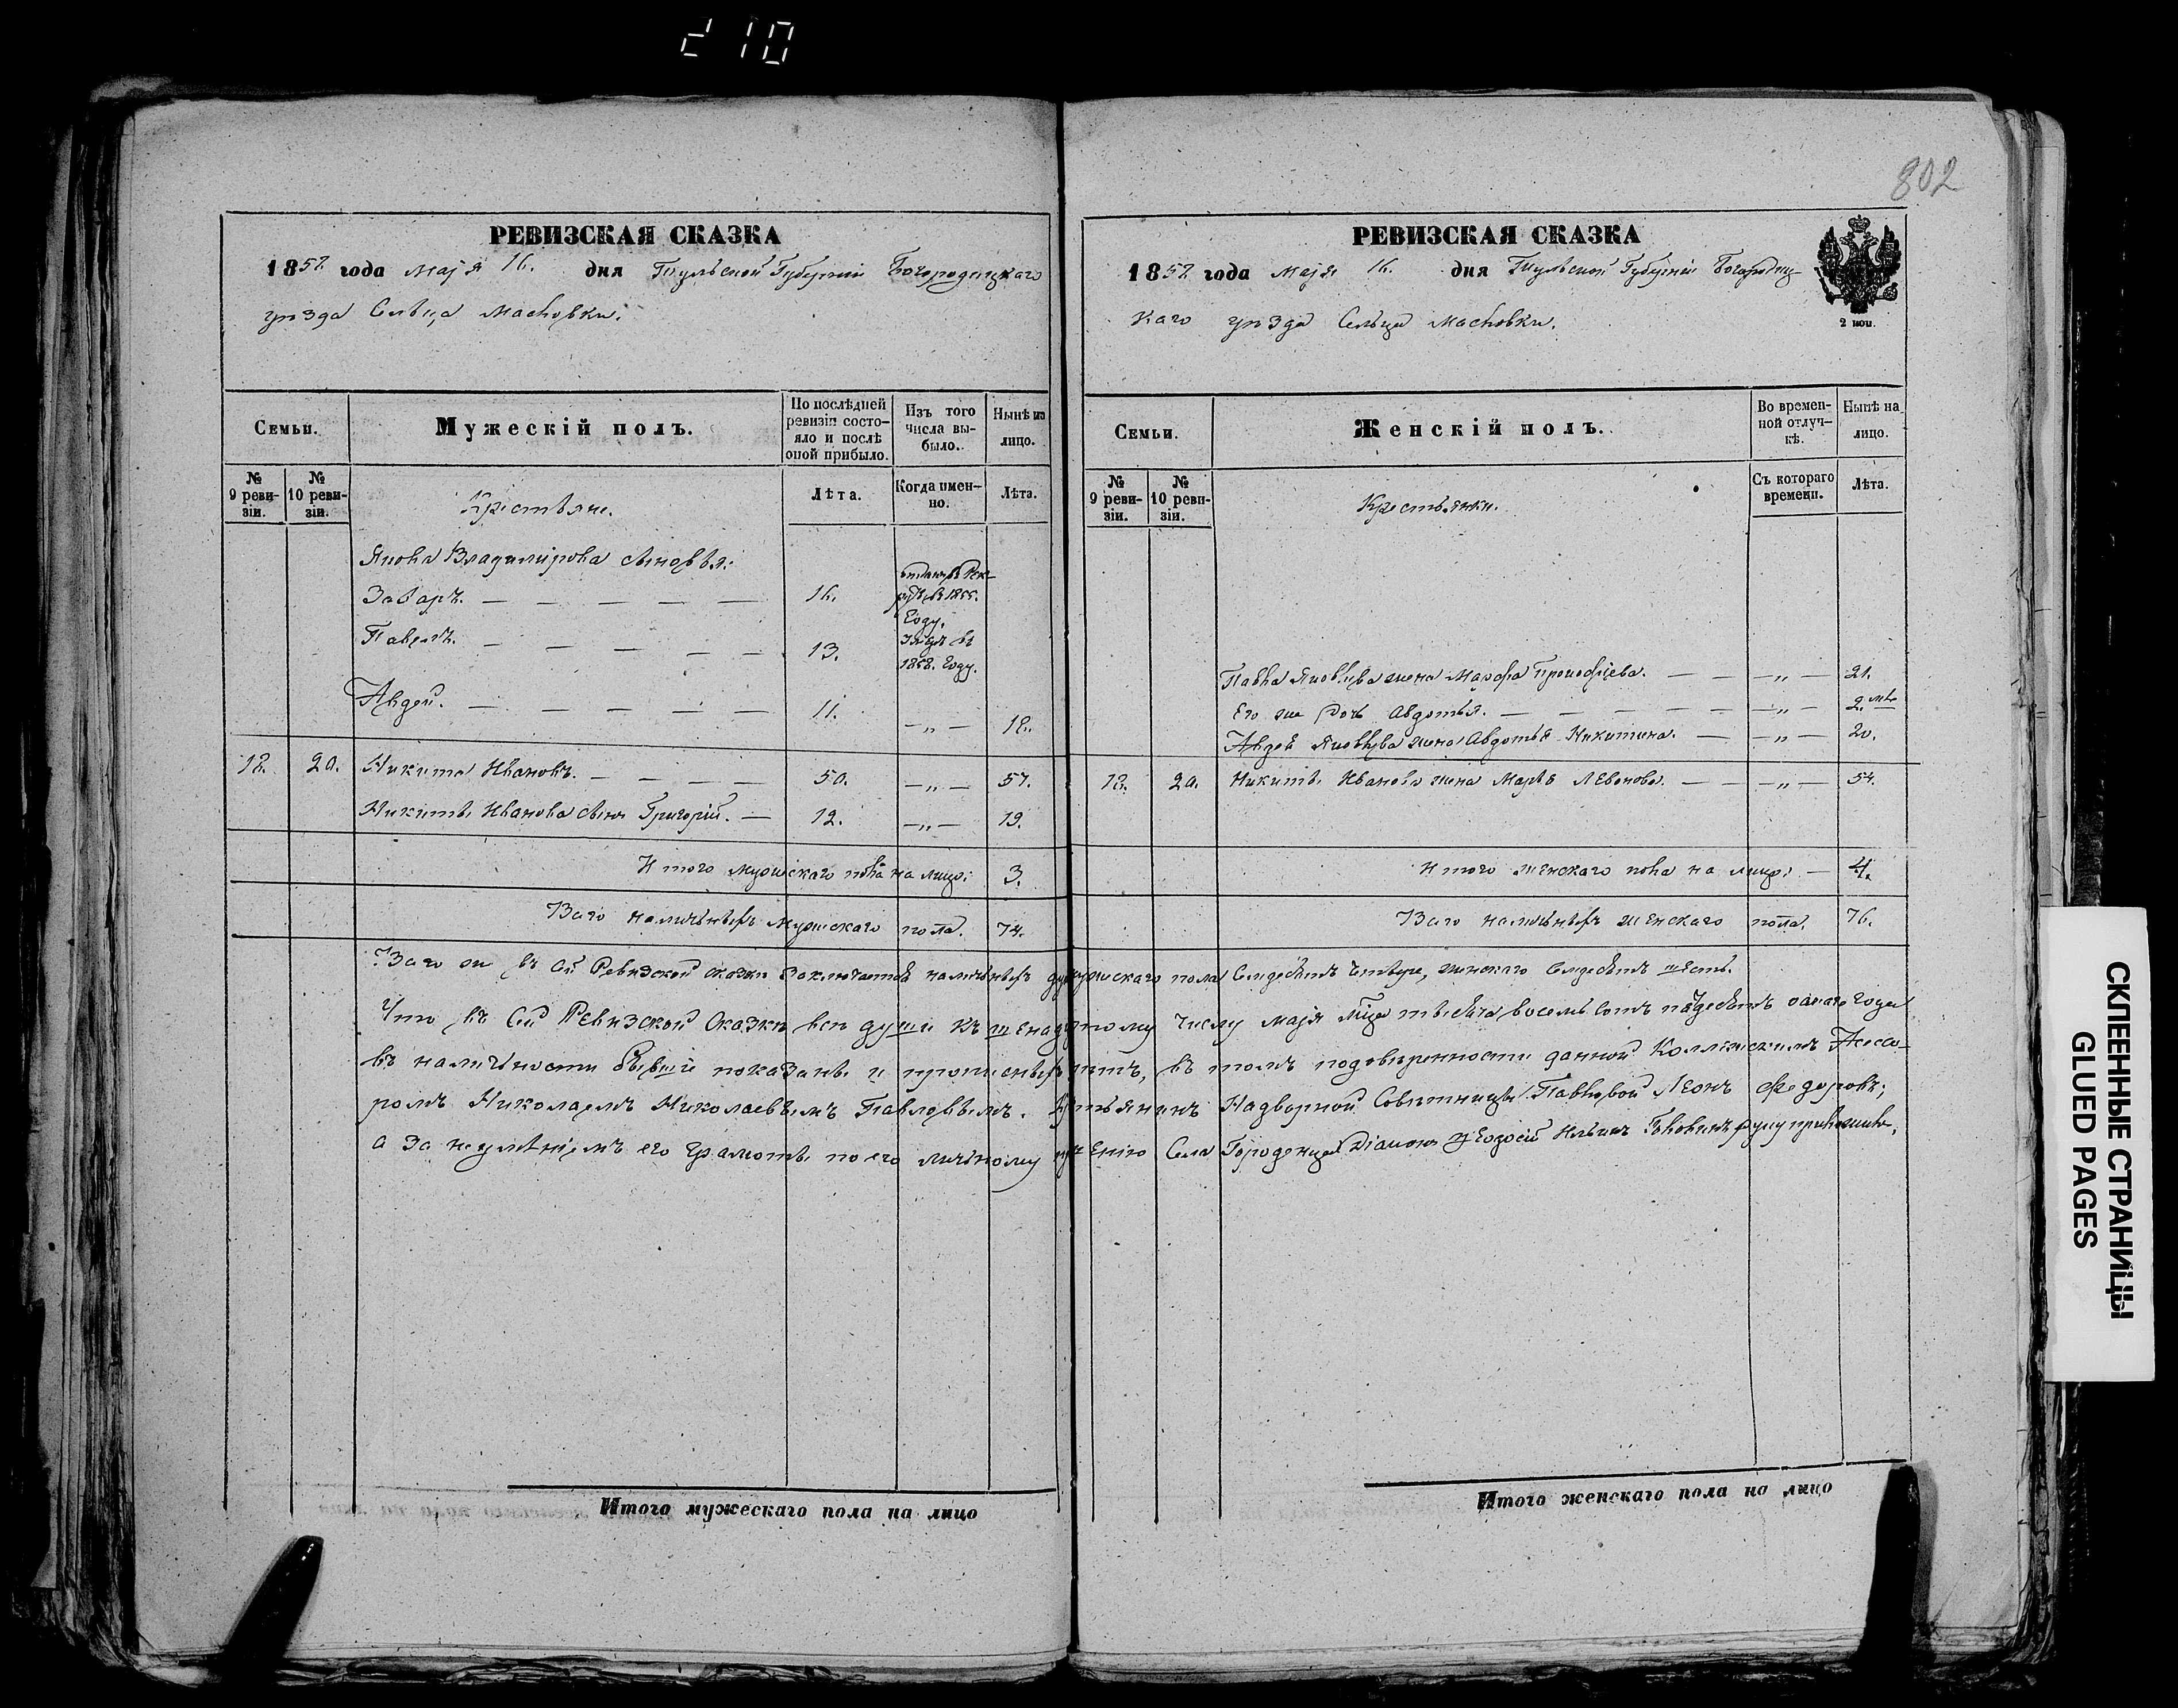 210
802
РЕВИЗСКАЯ СКАЗКА
1858 года Маія 16. дня Тульской Губерніи Богородицкаго
уѣзда Сельца Масловки.
Семьи.
Мужескій полъ.
По послѣдней ревизіи состояло и послѣ оной прибыло.
Изъ того числа выбыло.
Нынѣ на лицо.
№ 9 ревизіи.
№ 10 ревизіи.
Крестьяне.
Лѣта.
Когда именно.
Лѣта.
Якова Владимірова сыновья:
Захаръ. — — — — — 16. въ Рекруты въ 1855. Году.
Павелъ. — — — — — 13. въ 1858. Году.
Авдей. — — — — — 11. — „ — 18.
18. 20. Никита Ивановъ. — — — — 50. — „ — 57.
Никиты Иванова сынъ Григорій. — 12. — „ — 19.
Итого мужескаго пола на лицо: 3.
Всего наличныхъ мужескаго пола. 74.
Итого мужескаго пола на лицо
РЕВИЗСКАЯ СКАЗКА
1858 года Маія 16. дня Тульской Губерніи Богородиц-
каго уѣзда Сельца Масловки.
2 коп.
Семьи.
Женскій полъ.
Во временной отлучкѣ.
Нынѣ на лицо.
№ 9 ревизіи.
№ 10 ревизіи.
Крестьянки.
Съ котораго времени.
Лѣта.
Павла Яковлева жена Марфа Прокофіева. — — — „ — 21.
Его же дочь Авдотья. — — — — — — „ — 2.
Авдея Яковлева жена Авдотья Никитина. — — „ — 20.
18. 20. Никиты Иванова жена Марья Левонова. — — — „ — 54.
Итого женскаго пола на лицо: — 4.
Всего наличныхъ женскаго пола. 76.
Всего же въ сей Ревизской сказкѣ заключается наличныхъ душъ мужескаго пола Семдесятъ четыре, женскаго Семдесятъ шесть.
Что въ Сей Ревизской Сказкѣ всѣ души къ шенадцатому числу маія мѣсяца тысяча восемь сотъ пядесятъ осмаго года
въ наличности бывшіе показаны и прописныхъ нѣтъ, въ томъ подовѣренности данной Коллежскимъ Асесо-
ромъ Николаемъ Николаевымъ Павловымъ. Крестьянинъ Надворной Совѣтницы Павловой Леонъ Федоровъ;
а за неумѣніемъ его грамоты по его личному прошенію Села Городенца Діаконъ Ильинъ руку приложилъ.
Итого женскаго пола на лицо
СКЛЕЕННЫЕ СТРАНИЦЫ
GLUED PAGES